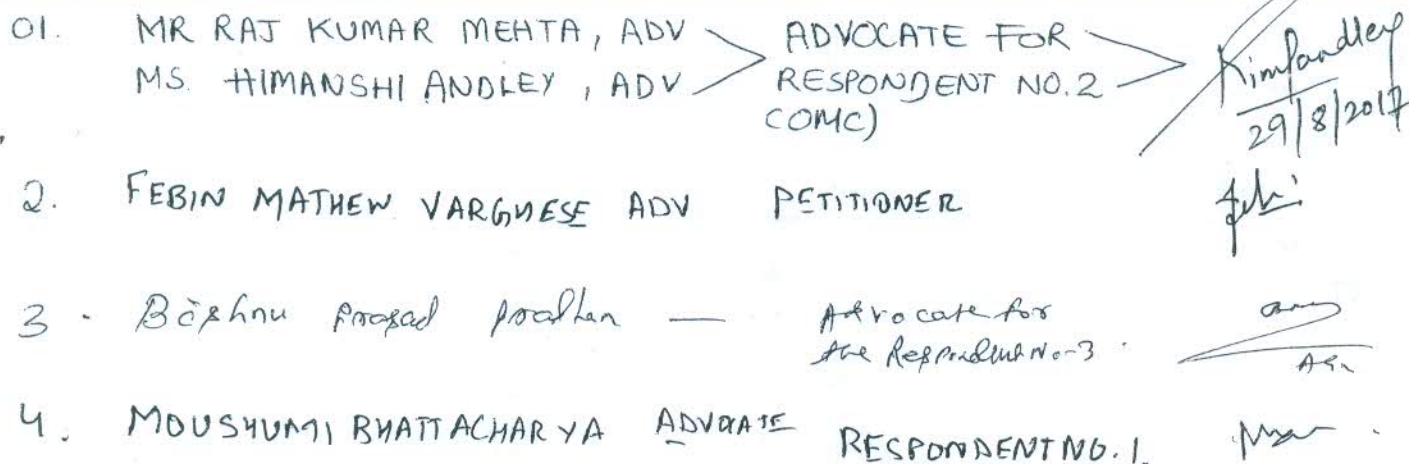 01. MR RAJ KUMAR MEHTA, ADV ADVOCATE FOR
MS. HIMANSHI ANDLEY, ADV RESPONDENT NO.2
COMC)
29/8/2017
2. FEBIN MATHEW VARGHESE ADV PETITIONER
3. Bishnu Prasad Pradhan — Advocate for
the Respondent No-3.
4. MOUSHUMI BHATTACHARYA ADVOCATE RESPONDENT NO.1.